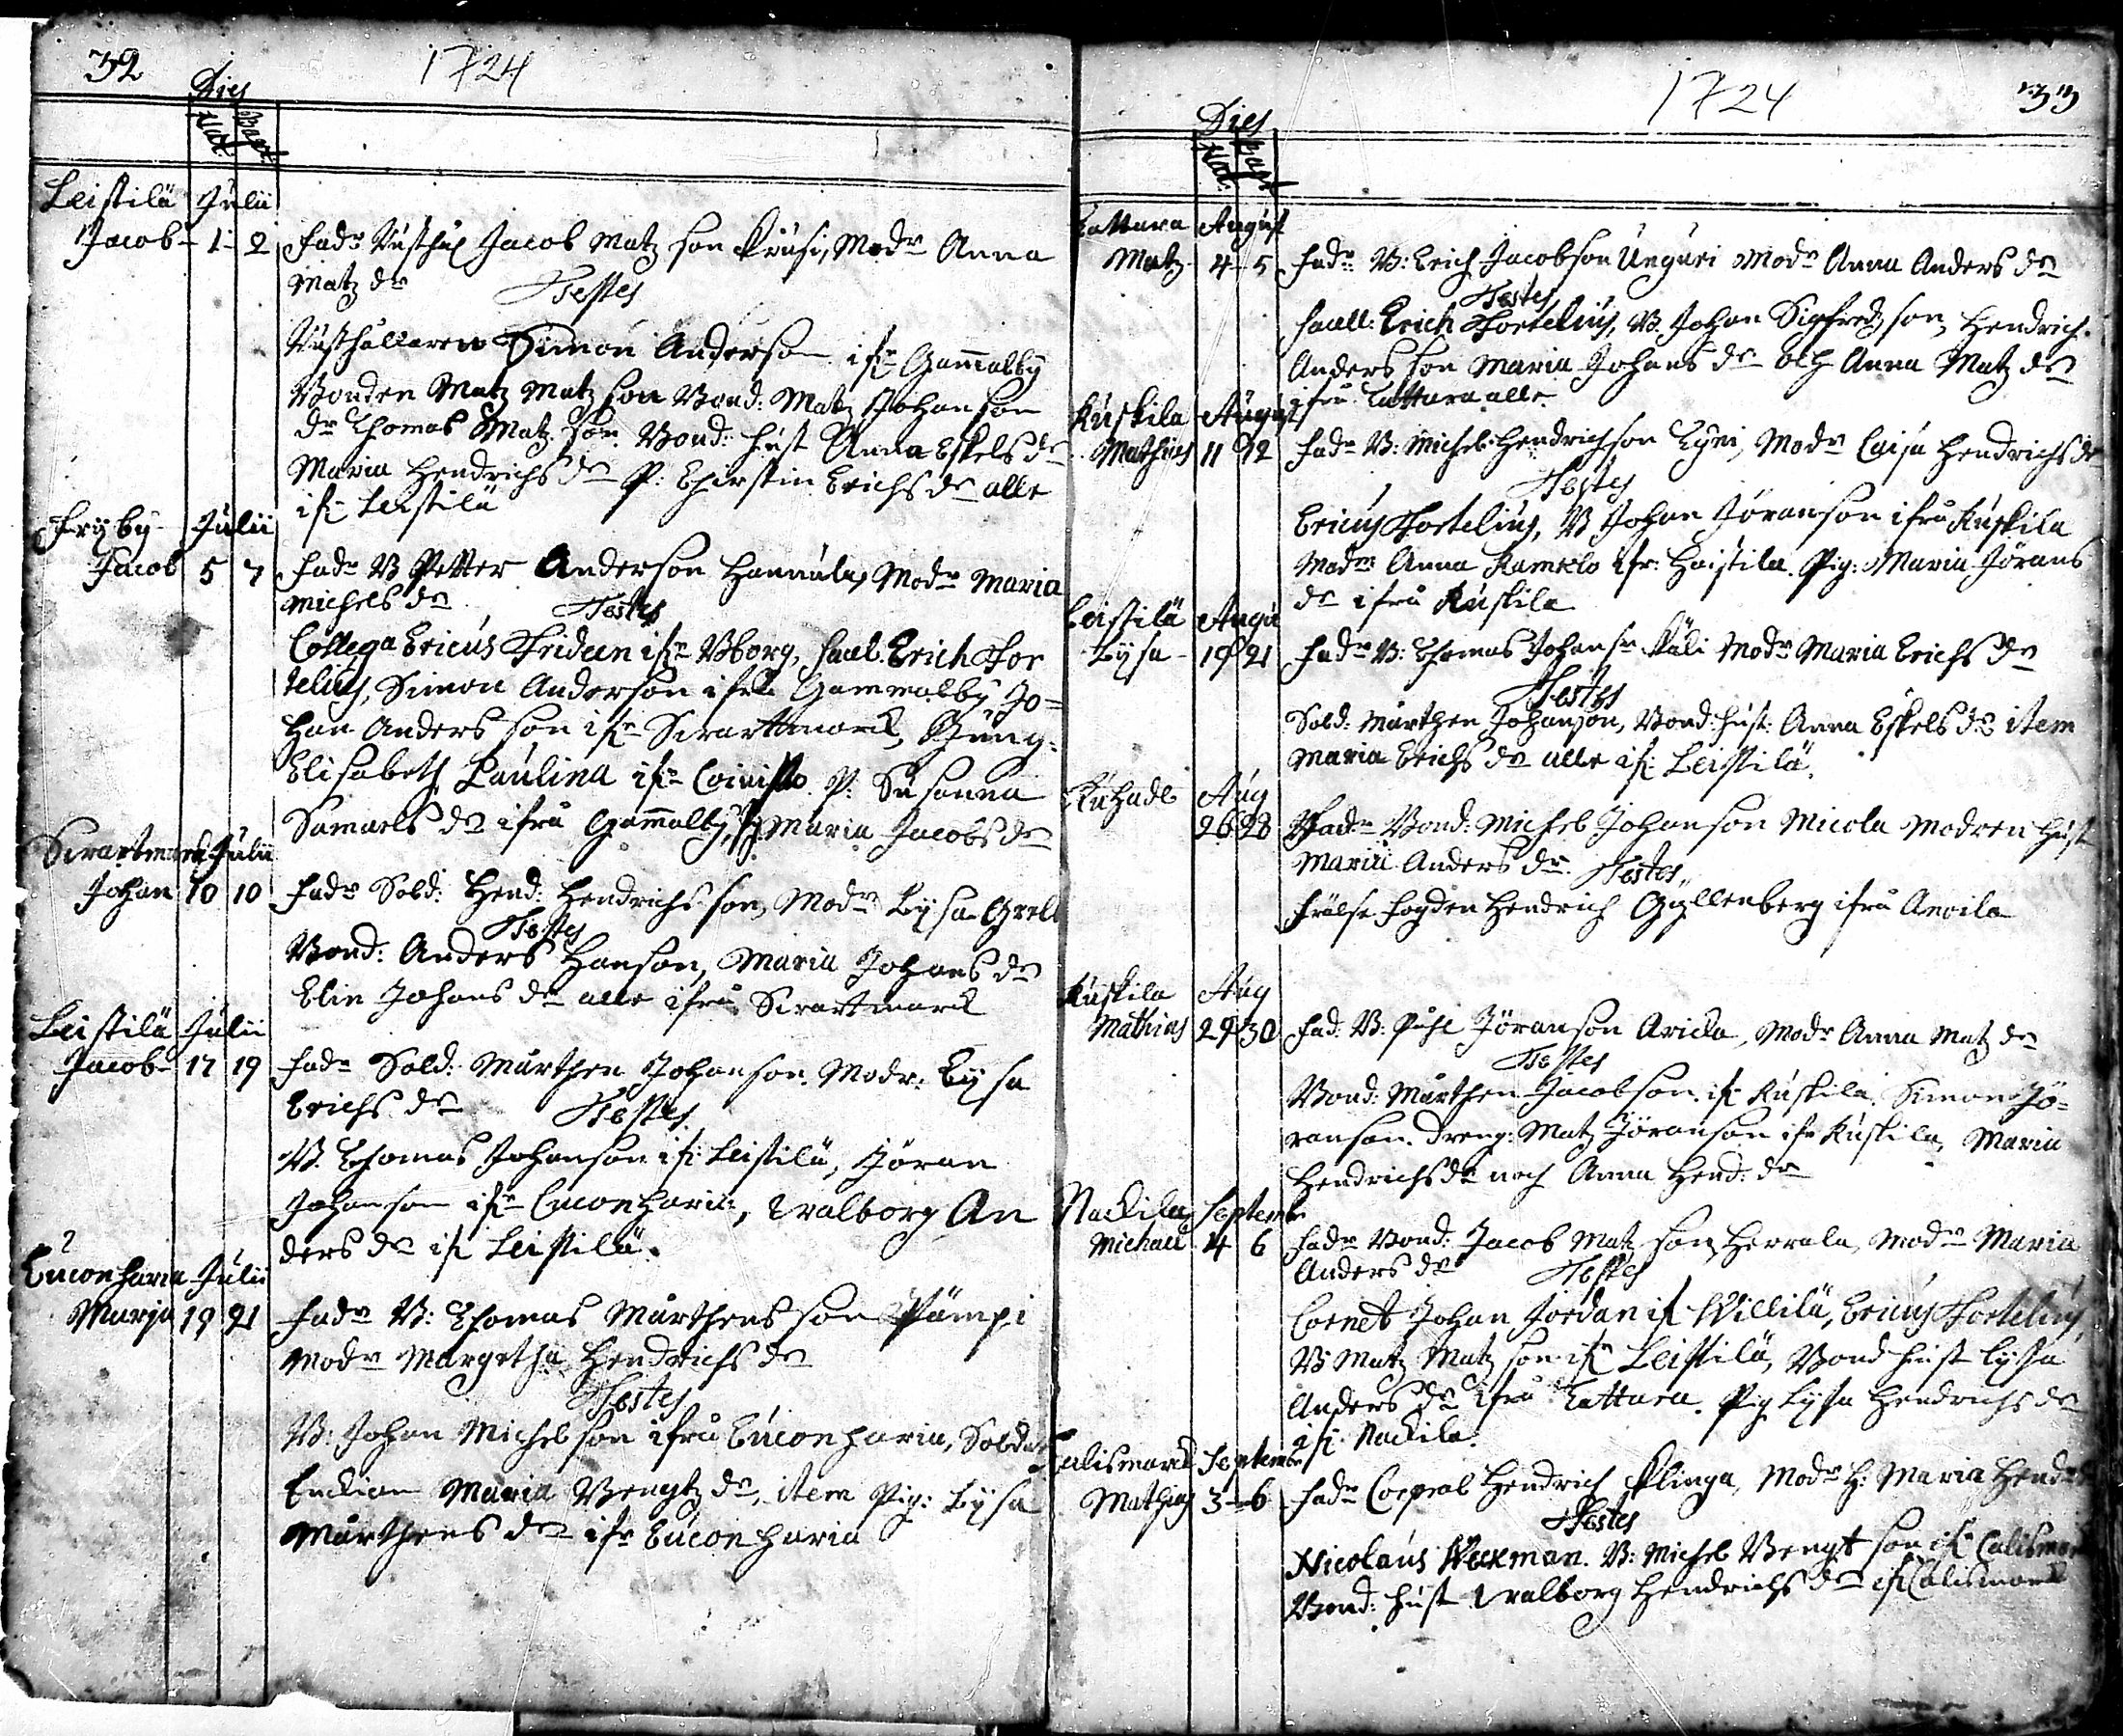 32
1724
Dies
Nat. Bapt.
Leistilä Julii
Jacob 1 2 Fadr Rusthål Jacob Matz son Krusi, Modr Anna
Matz dr Testes
Rusthållaren Simon Anderson ifr Gammalby
Bonden Matz Matz son Bond: Matz Johanson
dr Thomas Matz son Bond: hust Anna Eskels dr
Maria Hendrichs dr P: Chirstin Erichs dr alle
ifr Leistilä
Fryby Julii
Jacob 5 7 Fadr B Petter Anderson Hannula, Modr Maria
Michels dr Testes
Collega Ericus Frideen ifr Bborg, Saal: Erich For
telius, Simon Anderson ifrå Gammalby Jo=
han Anders son ifr Svartsmark, Jung:
Elisabeth Paulina ifr Coivisto P: Susanna
Samuels dr ifrå Gammalby, P Maria Jacobs dr
Svartsmark Julii
Johan 10 10 Fadr Sold: Hend: Hendrichs son, Modr Lysa Grels
Testes
Bond: Anders Hanson, Maria Johans dr
Elin Johans dr alle ifrå Svartsmark
Leistilä Julii
Jacob 17 19 Fadr Sold: Mårthen Johanson. Modr: Lysa
Erichs dr Testes
B. Thomas Johanson ifr Leistilä, Jöran
Johanson ifr Euconharia, Walborg An
ders dr ifr Leistilä.
Euconharia Julii
Marja 19 21 Fadr B: Thomas Mårthens son Pämpi
Modr Margetha Hendrichs dr
Testes
B: Johan Michelson ifrå Euconharia, Soldat
Enckian Maria Bengtz dr, item Pig: Lysa
Mårthens dr ifr Euconharia
1724
33
Dies
Nat. Bapt
Lattara August
Matz 4 5 Fadr B: Erich Jacobson Unguri Modr Anna Anders dr
Testes
Saall: Erich Fortelius, B. Johan Sigfredz son, Hendrich
Anders son Maria Johans dr och Anna Matz dr
ifrå Lattara alle
Kuskila August
Mathias 11 12 Fadr B: Michel Hendrichson Kyni, Modr Caisa Hendrichs dr
Testes
Ericus Fortelius, B Johan Jöranson ifrå Kuskila
Modr Anna Ramklo ifr: Haistila. Pig: Maria Jörans
dr ifrå Kuskila
Leistilä Augu
Lysa 19 21 Fadr B: Thomas Johans sn Päli Modr Maria Erichs dr
Testes
Sold: Mårthen Johanson, Bond: hust: Anna Eskels dr item
Maria Erichs dr alle ifr Leistilä.
Aug
26 28 Fadr Bond: Michel Johanson Nicola Modren hust
Maria Anders dr. Testes
Frälse Fogden Hendrich Gyllenberg ifrå Anoila
Kuskila Aug
Mathias 29 30 Fad: B: Jöranson Aricka, Modr Anna Matz dr
Testes
Bond: Mårthen Jacobson ifr Kuskila, Simon Jö=
ranson. Dreng: Matz Jöranson ifr Kuskila, Maria
Hendrichs dr och Anna Hend: dr
Nackila Septemb
Michael 4 6 Fadr Bond: Jacob Matz son, Herrala, Modr Maria
Anders dr Testes
Cornet Johan Jordan ifr Willilä, Ericus Fortelius,
B: Matz Matz son ifr Leistilä, Bond hust Lysa
Anders dr ifrå Lattara. Pig Lysa Hendrichs dr
ifr Nackila.
Calismarck Septemb
Mathias 3 6 Fadr Corpral Hendrich Klinga, Modr H: Maria Hend
Testes
Nicolaus Weckman. B: Michel Bengt son ifr Calismar
Bond: hust Walborg Hendrichs dr ifr Calismarck